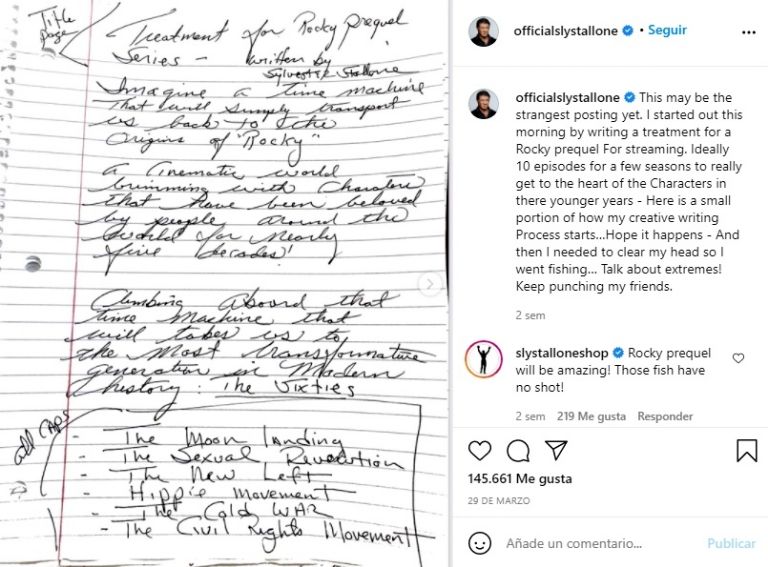 Title
page
Treatment for Rocky prequel
Series - written by
Sylvester Stallone
Imagine a time machine
That will simply transport
us back to the
Origins of "Rocky"
A Cinematic world
brimming with Characters
that have been beloved
by people around the
World for nearly
five decades!
Climbing Aboard that
time machine that
will takes us to
the most transformative
generation in Modern
history: The Sixties
All CAPS
- The Moon landing
- The Sexual Revolution
- The New Left
- Hippie Movement
- The Cold WAR
- The Civil Rights Movement
officialslystallone • Seguir
officialslystallone This may be the
strangest posting yet. I started out this
morning by writing a treatment for a
Rocky prequel For streaming. Ideally
10 episodes for a few seasons to really
get to the heart of the Characters in
there younger years - Here is a small
portion of how my creative writing
Process starts...Hope it happens - And
then I needed to clear my head so I
went fishing... Talk about extremes!
Keep punching my friends.
2 sem
slystalloneshop Rocky prequel
will be amazing! Those fish have
no shot!
2 sem 219 Me gusta Responder
145.661 Me gusta
29 DE MARZO
Añade un comentario... Publicar